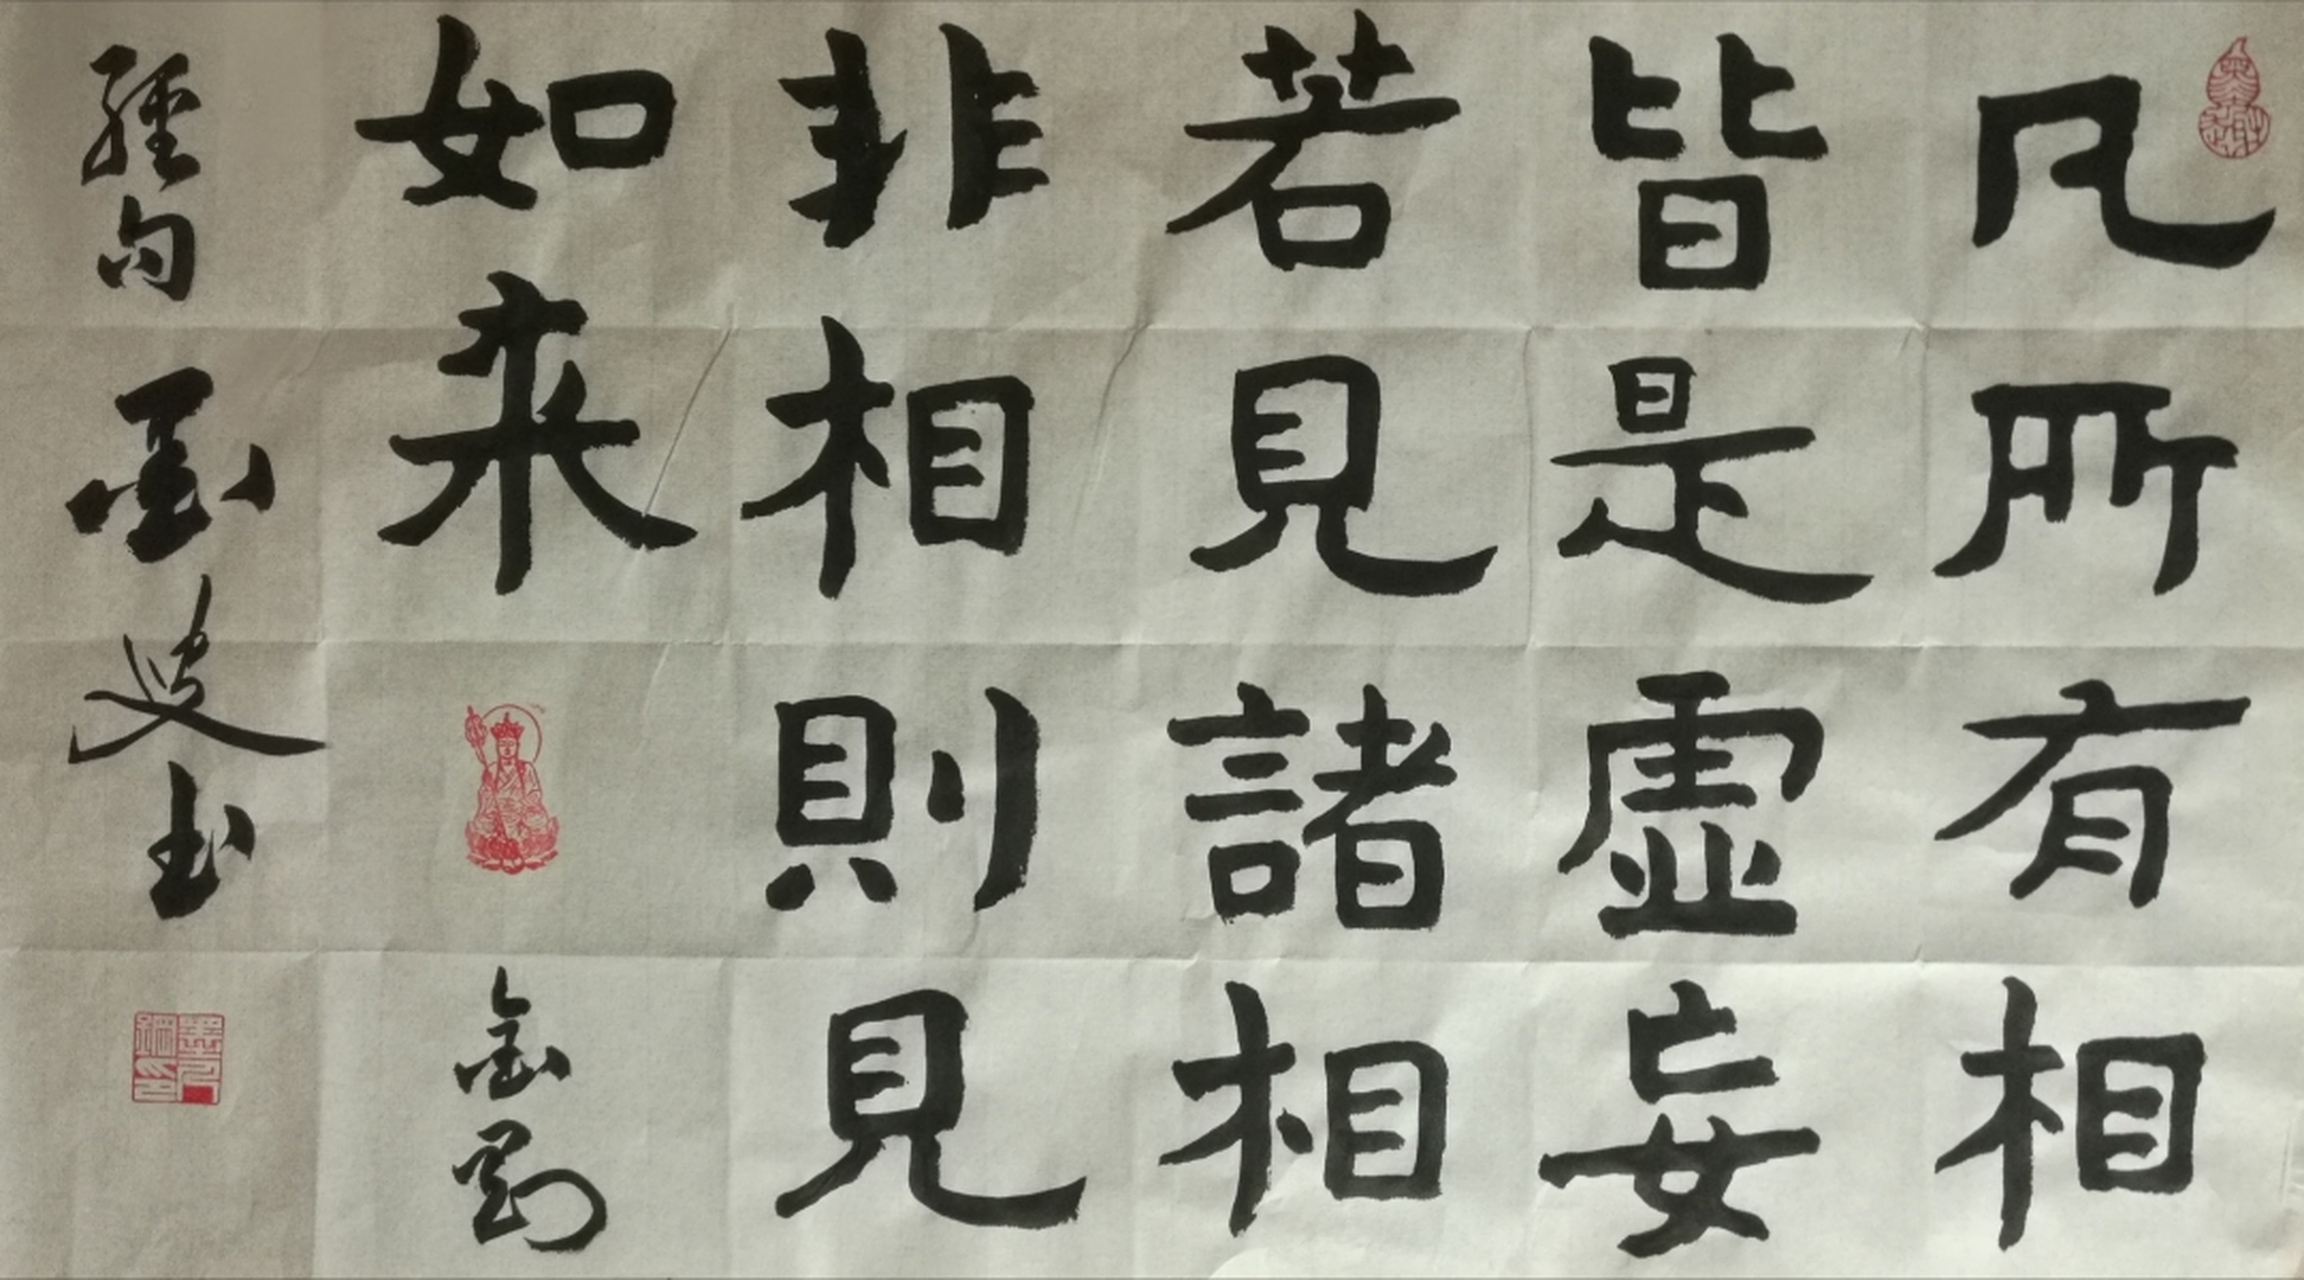 凡所有相
皆是虛妄
若見諸相
非相則見
如来金剛
經句墨叟书